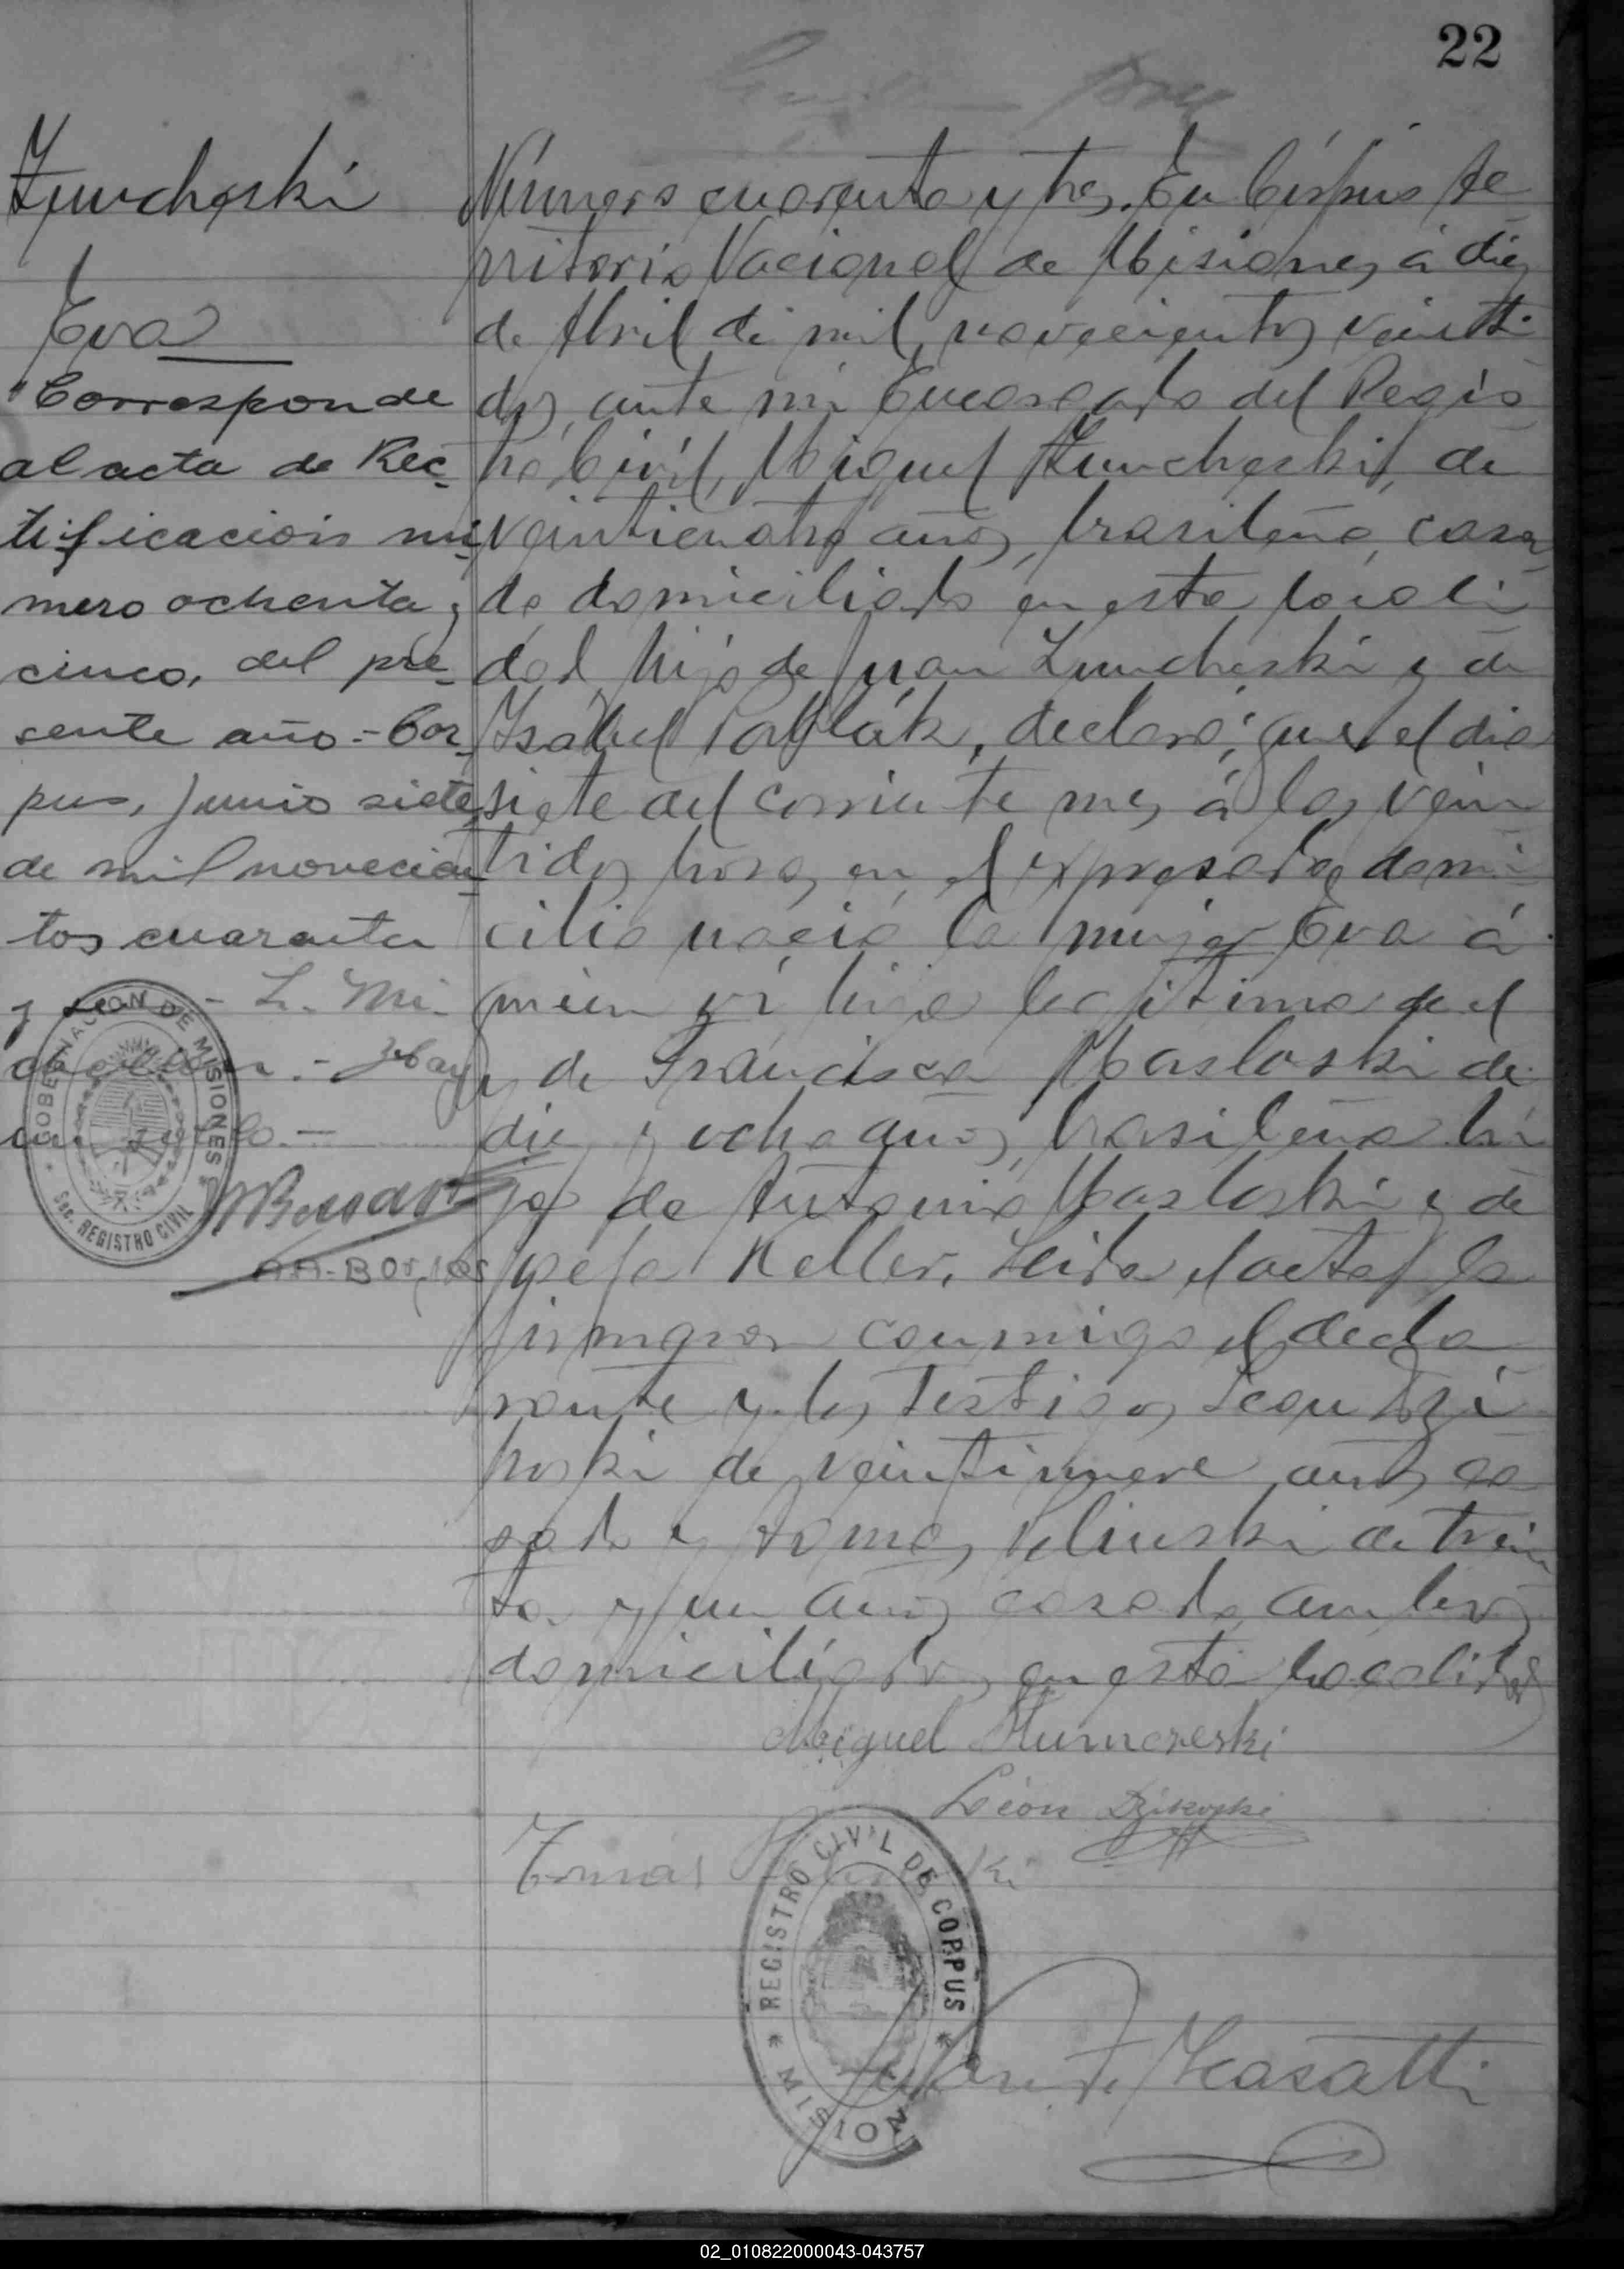 22
Zuncheski
Eva
"Corresponde
al acta de Rec-
tificación nú-
mero ochenta y
cinco, del pre-
sente año.- Cor-
pus, Junio siete
de mil novecien-
tos cuarenta
y
GOBERNACION DE MISIONES
Sec. REGISTRO CIVIL
Número cuarenta y tres. En Córpus te-
rritorio Nacional de Misiones, á diez
de Abril de mil novecientos veinti-
dos, ante mi Encargado del Regis-
tro Civil, Miguel Zuncheski, de
veinticuatro años, brasileño, casa-
do domiciliado en esta locali-
dad, hijo de Juan Zuncheski y de
Isabel declaró; que el dia
siete del corriente mes á las vein-
tidos horas, en el expresado domi-
cilio nació la mujer Eva á
quien ví hija legitima de el
y de Francisca Masloski de
diez y ocho años, brasileña hi-
ja de Antonio Masloski y de
Josefa Keller. Leida el acta la
firmaron conmigo el decla-
rante y los testigos Leon Dzi-
koski de veintinueve años ca-
sado y Tomas de trein-
ta y un años casado ambos
domiciliados en esta localidad
Miguel
León Dzikoski
Tomás
REGISTRO CIVIL DE CORPUS
MISION
Masatti
02_010822000043-043757